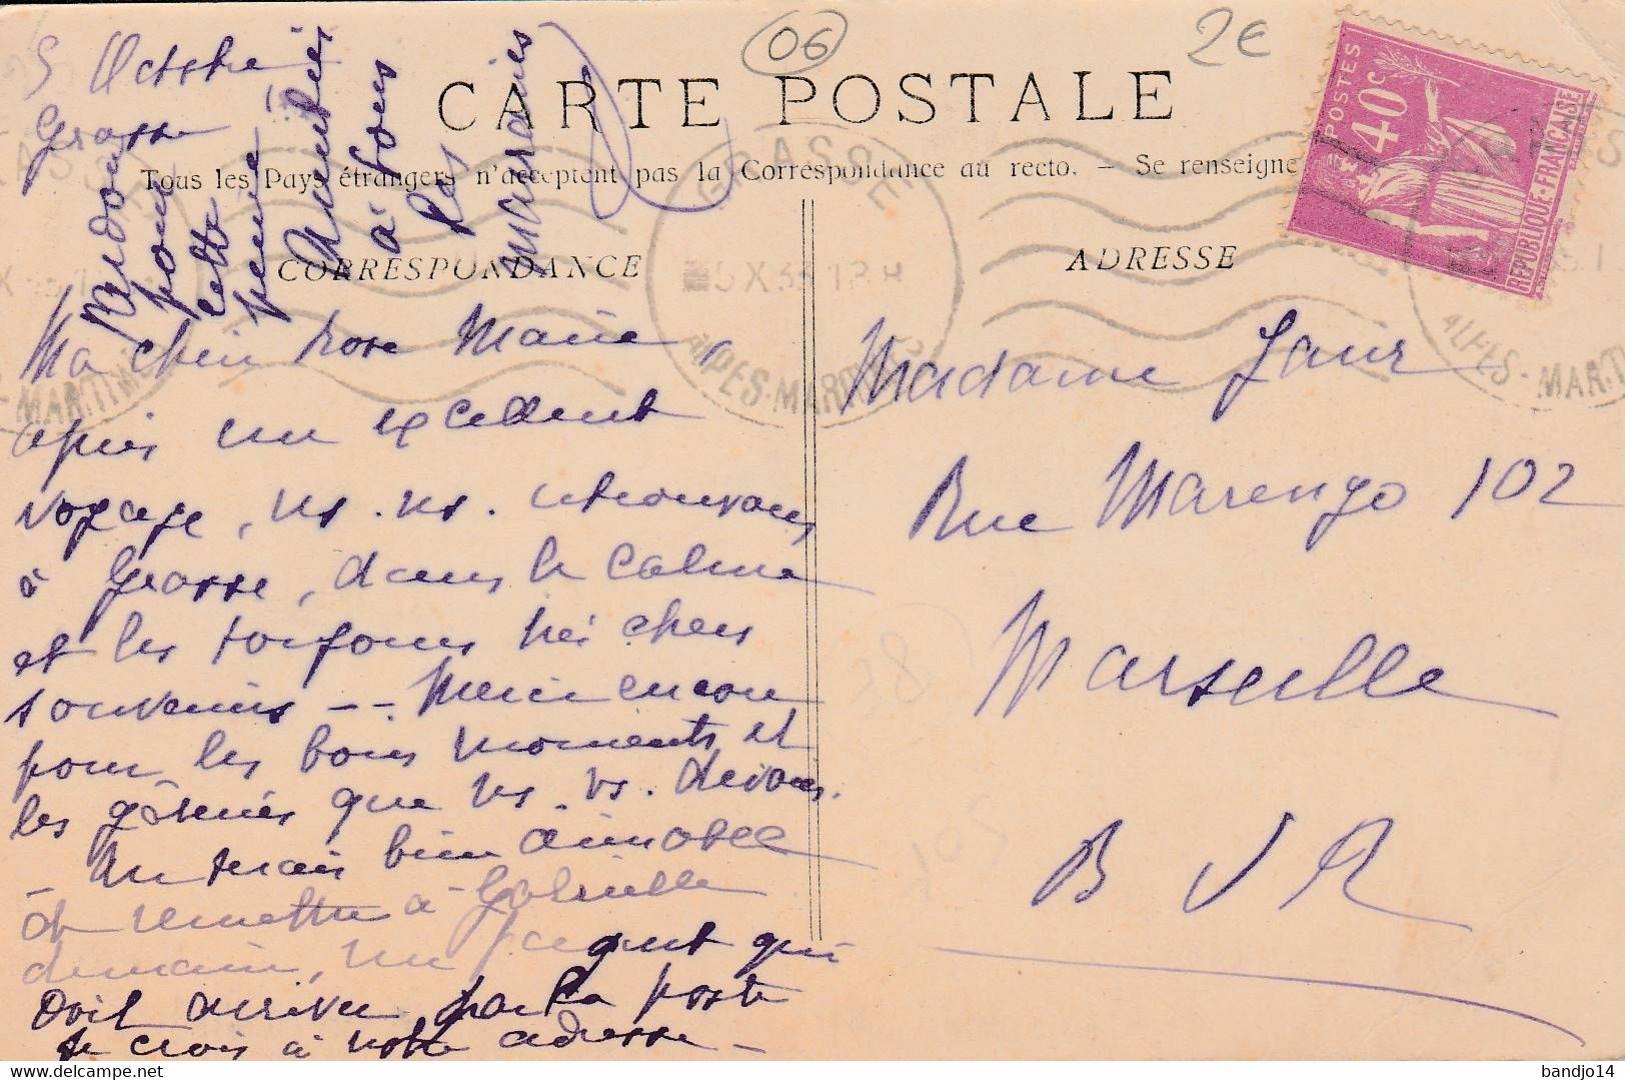 5 Octobre
Grasse
CARTE POSTALE
Tous les Pays étrangers n'acceptent pas la Correspondance au recto. — Se renseigne
CORRESPONDANCE
Ma chère Rose Marie,
après un excellent
voyage, ns. ns. retrouvons
à Grasse, dans le calme
et les toujours très chers
souvenirs -- Merci encore
pour les bons moments et
les gâteries que ns. vs. devons.
Tu serais bien aimable
de remettre à Gabrielle
demain, un paquet qui
doit arriver par la poste
je crois à votre adresse –
Pardon
pour
cette
peine
Amitiés
à tous
les
06
2€
POSTES
40c
REPUBLIQUE-FRANÇAISE
GRASSE
5 X 33 18H
ALPES-MARITIMES
ADRESSE
Madame Jaur
Rue Marengo 102
Marseille
B D R
bandjo14